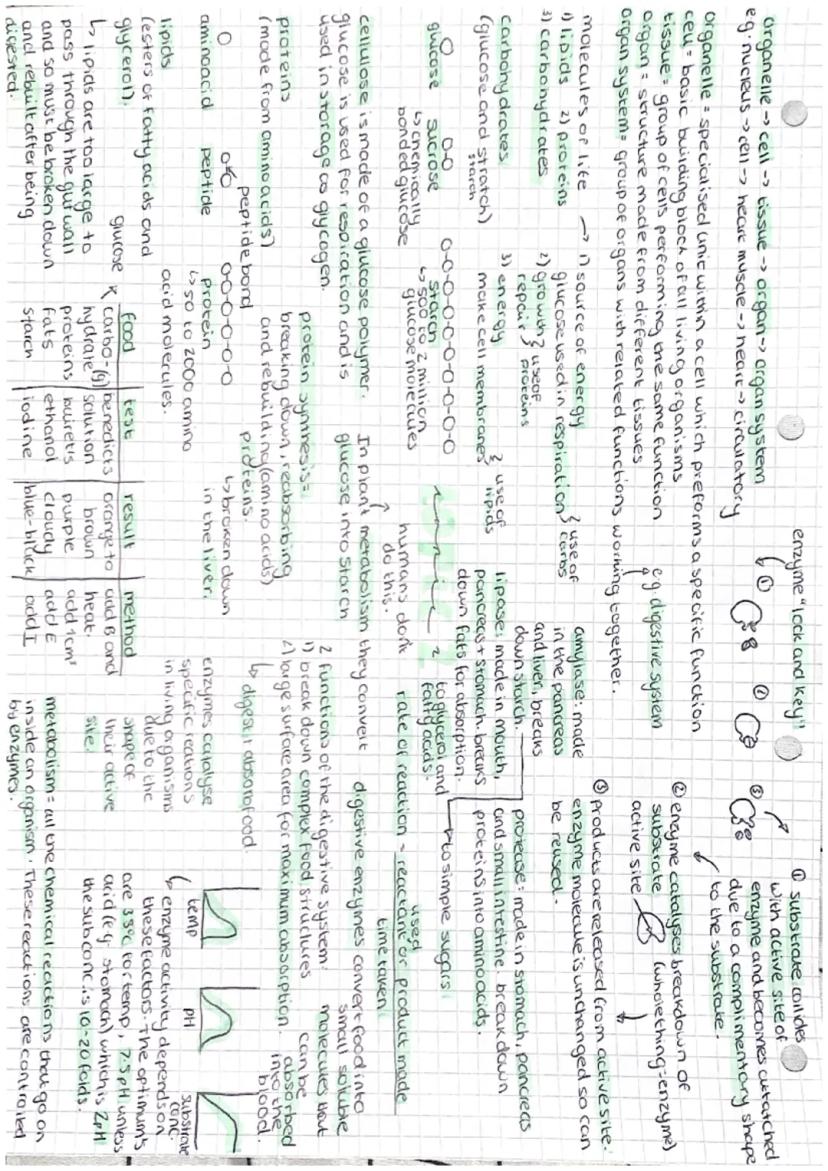 organelle → cell → tissue → organ → organ system
eg. nucleus → cell → heart muscle → heart → circulatory
organelle = specialised unit within a cell which preforms a specific function
cell = basic building block of all living organisms
tissue = group of cells performing the same function
organ = structure made from different tissues
eg. digestive system
organ system = group of organs with related functions working together.
molecules of life → 1) source of energy
1) lipids 2) proteins
3) carbohydrates
glucose used in respiration } use of carbs
2) growth } use of
repair } proteins
3) energy
make cell membranes } use of lipids
carbohydrates
(glucose and stratch)
starch
O O-O O-O-O-O-O-O-O-O
glucose sucrose starch
↳ chemically
bonded glucose
↳ 500 to 2 million
glucose molecules
cellulose is made of a glucose polymer.
glucose is used for respiration and is
used in storage as glycogen.
In plant metabolism they convert
glucose into starch
humans don't
do this.
proteins
(made from amino acids)
peptide bond
O OO O-O-O-O-O-O
amino acid peptide protein
↳ 50 to 2000 amino
acid molecules.
protein synthesis =
breaking down, reabsorbing
and rebuilding (amino acids)
proteins.
↳ broken down
in the liver.
lipids
(esters of fatty acids and
glycerol).
↳ lipids are too large to
pass through the gut wall
and so must be broken down
and rebuilt after being
digested.
glucose
food test result method
carbo-(g) benedicts orange to add B and
hydrate solution brown heat.
proteins buiret's purple add 1cm³
fats ethanol cloudy add E
starch iodine blue-black add I
enzyme "lock and key"
① ② ③
① substrate collides
with active site of
enzyme and becomes attatched
due to a complimentary shape
to the substrate.
② enzyme catalyses breakdown of
substrate
active site (whole thing = enzyme)
③ products are released from active site.
enzyme molecule is unchanged so can
be reused.
amylase: made
in the pancreas
and liver, breaks
down starch.
to simple sugars
lipase: made in mouth,
pancreas + stomach. breaks
down fats for absorption.
to glycerol and
fatty acids.
protease: made in stomach, pancreas
and small intestine. break down
proteins into amino acids.
rate of reaction = reactant used or product made
time taken
2 functions of the digestive system:
1) break down complex food structures
2) large surface area for maximum absorption.
↳ digest + absorb food.
digestive enzymes convert food into
small soluble
molecules that
can be
absorbed
into the
blood.
enzymes catalyse
specific reations
in living organisms
due to the
shape of
their active
site.
temp pH substrate conc.
↳ enzyme activity depends on
these factors. The optimums
are 35°c for temp, 7.5 pH unless
acid (e.g. stomach) which is 2pH
the sub conc. is 10-20 folds.
metabolism = all the chemical reactions that go on
inside an organism. These reactions are controlled
by enzymes.